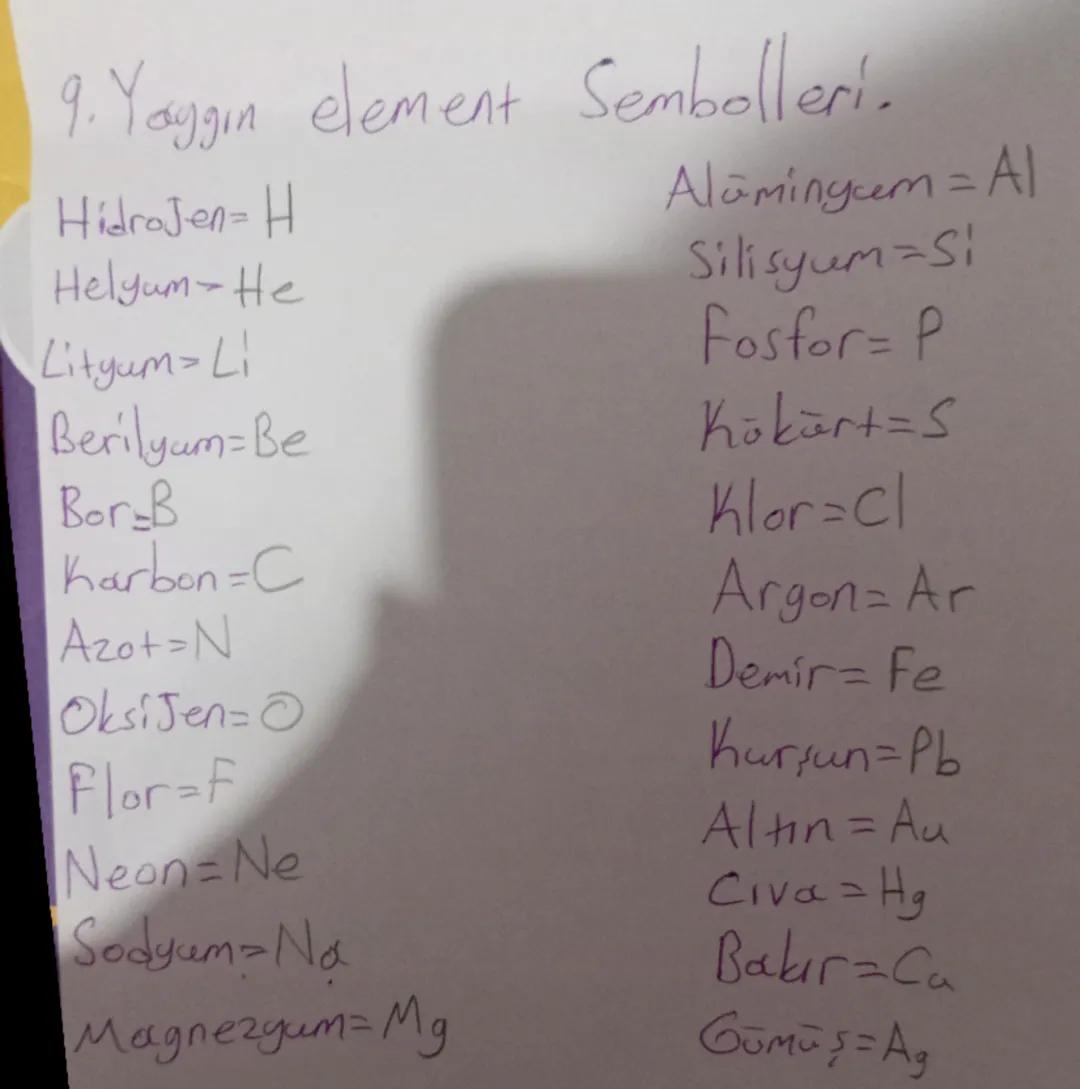 9. Yaygın element Sembolleri.
Hidrojen= H
Helyum= He
Lityum= Li
Berilyum=Be
Bor=B
Karbon=C
Azot=N
Oksijen=O
Flor=F
Neon=Ne
Sodyum=Na
Magnezyum=Mg
Alüminyum=Al
Silisyum=Si
Fosfor= P
Kükürt=S
Klor=Cl
Argon= Ar
Demir= Fe
Kurşun=Pb
Altın= Au
Cıva=Hg
Bakır=Cu
Gümüş=Ag